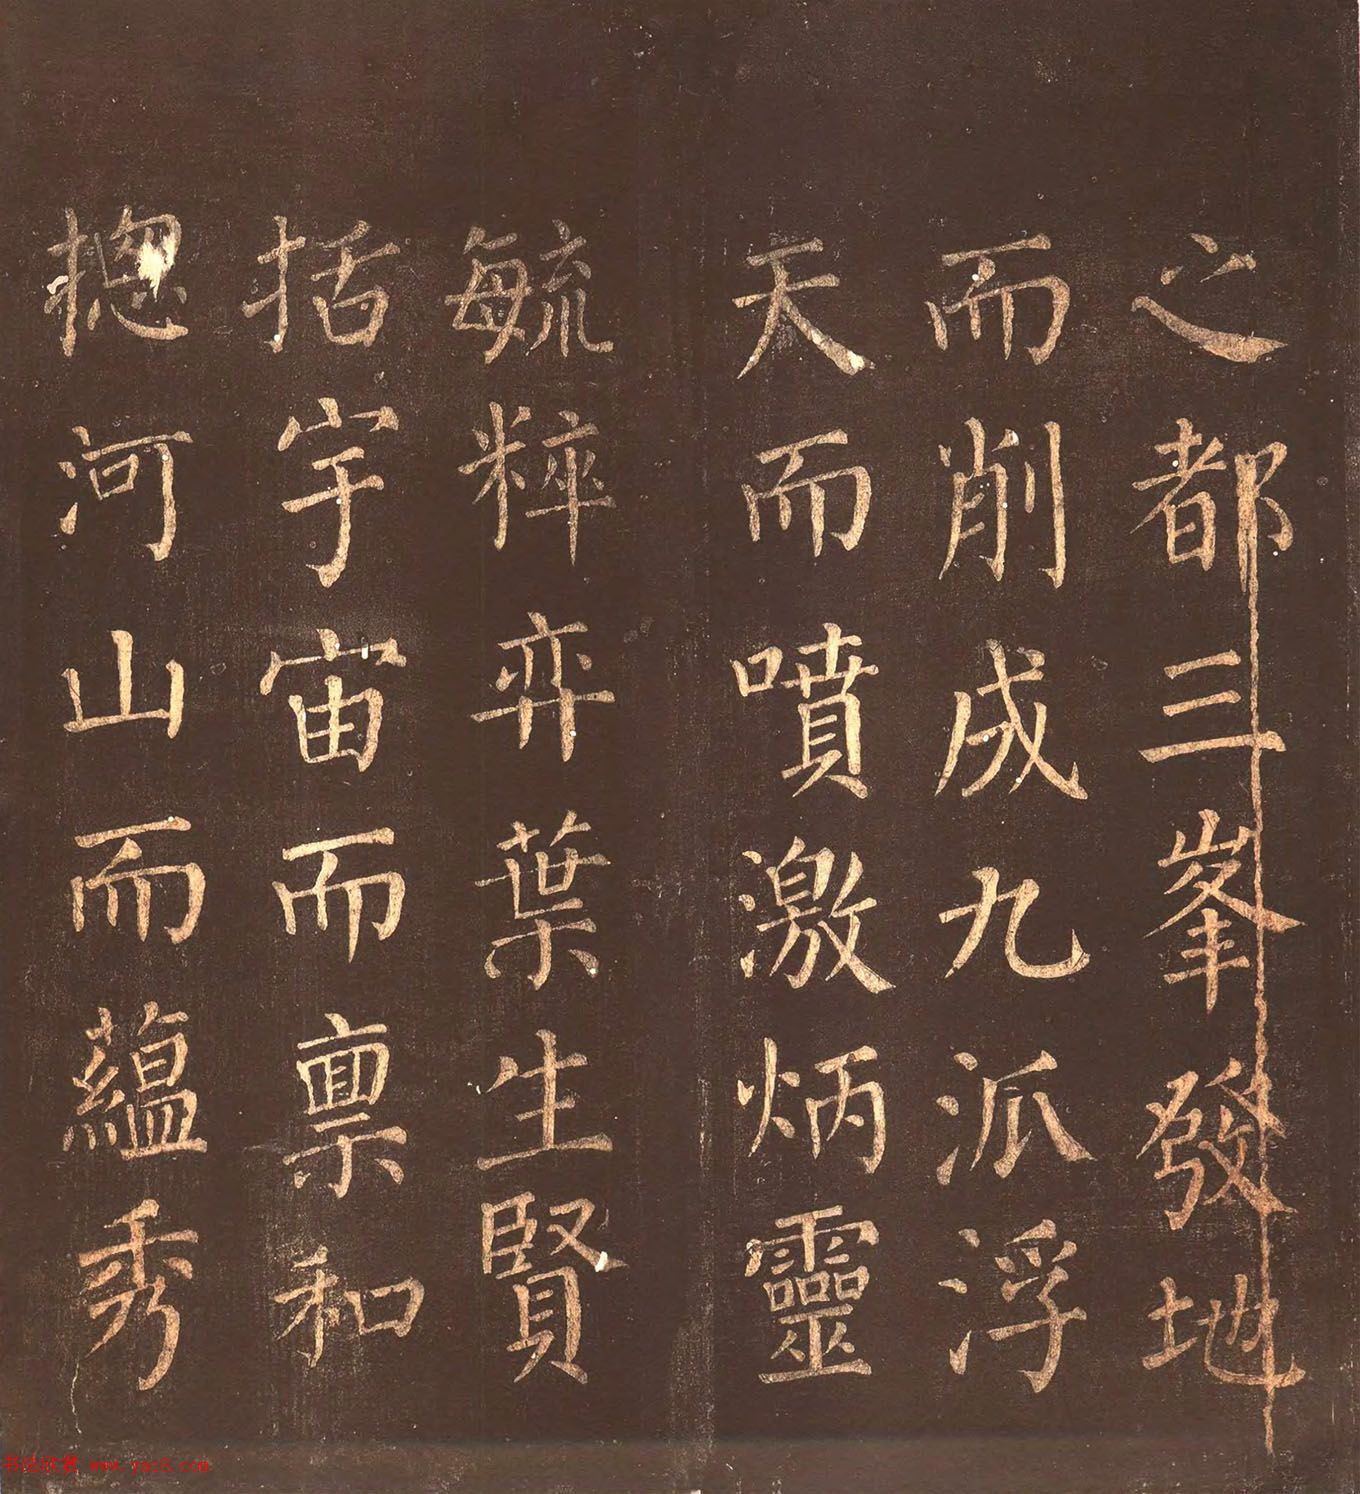 之都三峯發地
而削成九派浮
天而噴激炳靈
毓粹弈葉生賢
括宇宙而禀和
揔河山而蘊秀
书法欣赏 www.yac8.com